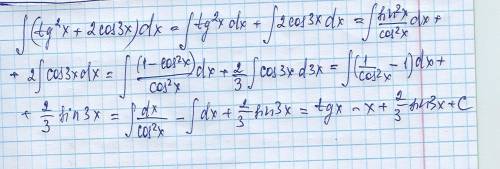 ∫(tg²x + 2cos3x)dx = ∫tg²x dx + ∫2cos3x dx = ∫(sin²x/cos²x)dx +
+ 2∫cos3x dx = ∫((1-cos²x)/cos²x)dx + 2/3∫cos3x d3x = ∫(1/cos²x - 1)dx +
+ 2/3 sin3x = ∫dx/cos²x - ∫dx + 2/3 sin3x = tgx - x + 2/3 sin3x + C